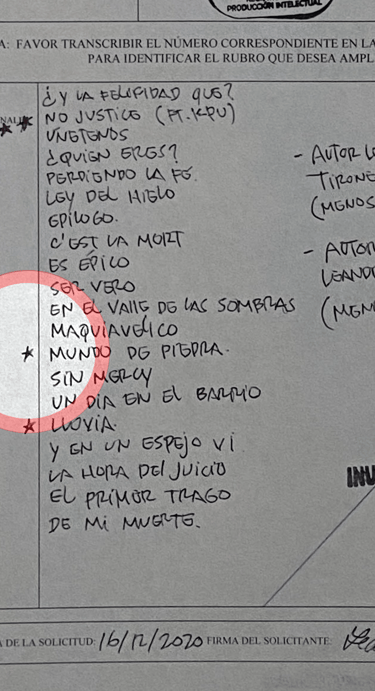 PRODUCCIÓN INTELECTUAL
A: FAVOR TRANSCRIBIR EL NÚMERO CORRESPONDIENTE EN LA
PARA IDENTIFICAR EL RUBRO QUE DESEA AMPL
¿Y LA FELICIDAD QUE?
NO JUSTICE (FT. KPU)
VNETENOS
¿QUIEN ERES?
PERDIENDO LA FÉ.
LEY DEL HIELO
EPÍLOGO.
C'EST LA MORT
ES ÉPICO
SER VERO
EN EL VALLE DE LAS SOMBRAS
MAQUIAVELICO
* MUNDO DE PIEDRA.
SIN MERCY
UN DÍA EN EL BARRIO
* LLOVIA.
Y EN UN ESPEJO VI
LA HORA DEL JUICIO
EL PRIMER TRAGO
DE MI MUERTE.
- AUTOR LE
TIRONE
(MENOS
- AUTOR
LEANDR
(MEN
INU
A DE LA SOLICITUD: 16/12/2020 FIRMA DEL SOLICITANTE: